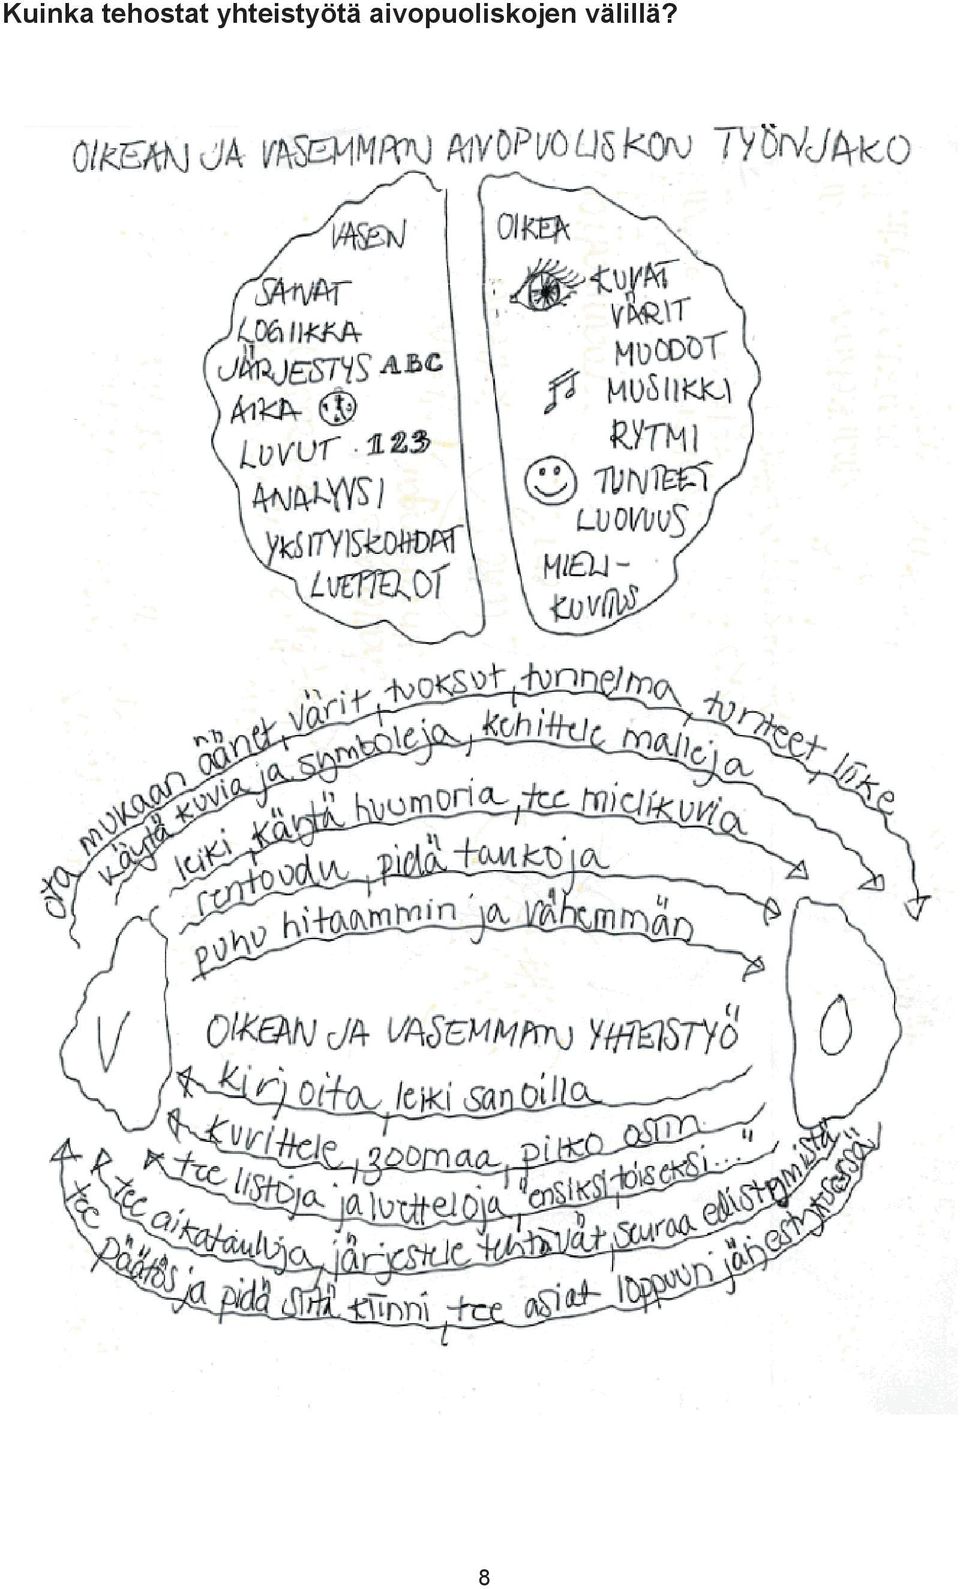 Kuinka tehostat yhteistyötä aivopuoliskojen välillä?
OIKEAN JA VASEMMAN AIVOPUOLISKON TYÖNJAKO
VASEN
SANAT
LOGIIKKA
JÄRJESTYS ABC
AIKA
LUVUT . 123
ANALYYSI
YKSITYISKOHDAT
LUETTELOT
OIKEA
KUVAT
VÄRIT
MUODOT
MUSIIKKI
RYTMI
TUNTEET
LUOVUUS
MIELI-
KUVITUS
ota mukaan äänet, värit, tuoksut, tunnelma, tunteet, liike
käytä kuvia ja symboleja, kehittele malleja
leiki, käytä huumoria, tee mielikuvia
rentoudu, pidä taukoja
puhu hitaammin ja vähemmän
V
O
OIKEAN JA VASEMMAN YHTEISTYÖ
kirjoita, leiki sanoilla
kuvittele, zoomaa, pilko osiin
tee listoja ja luetteloja, "ensiksi, toiseksi..."
tee aikatauluja, järjestele tehtävät, seuraa edistymistä
tee päätös ja pidä siitä kiinni, tee asiat loppuun järjestyksessä
8